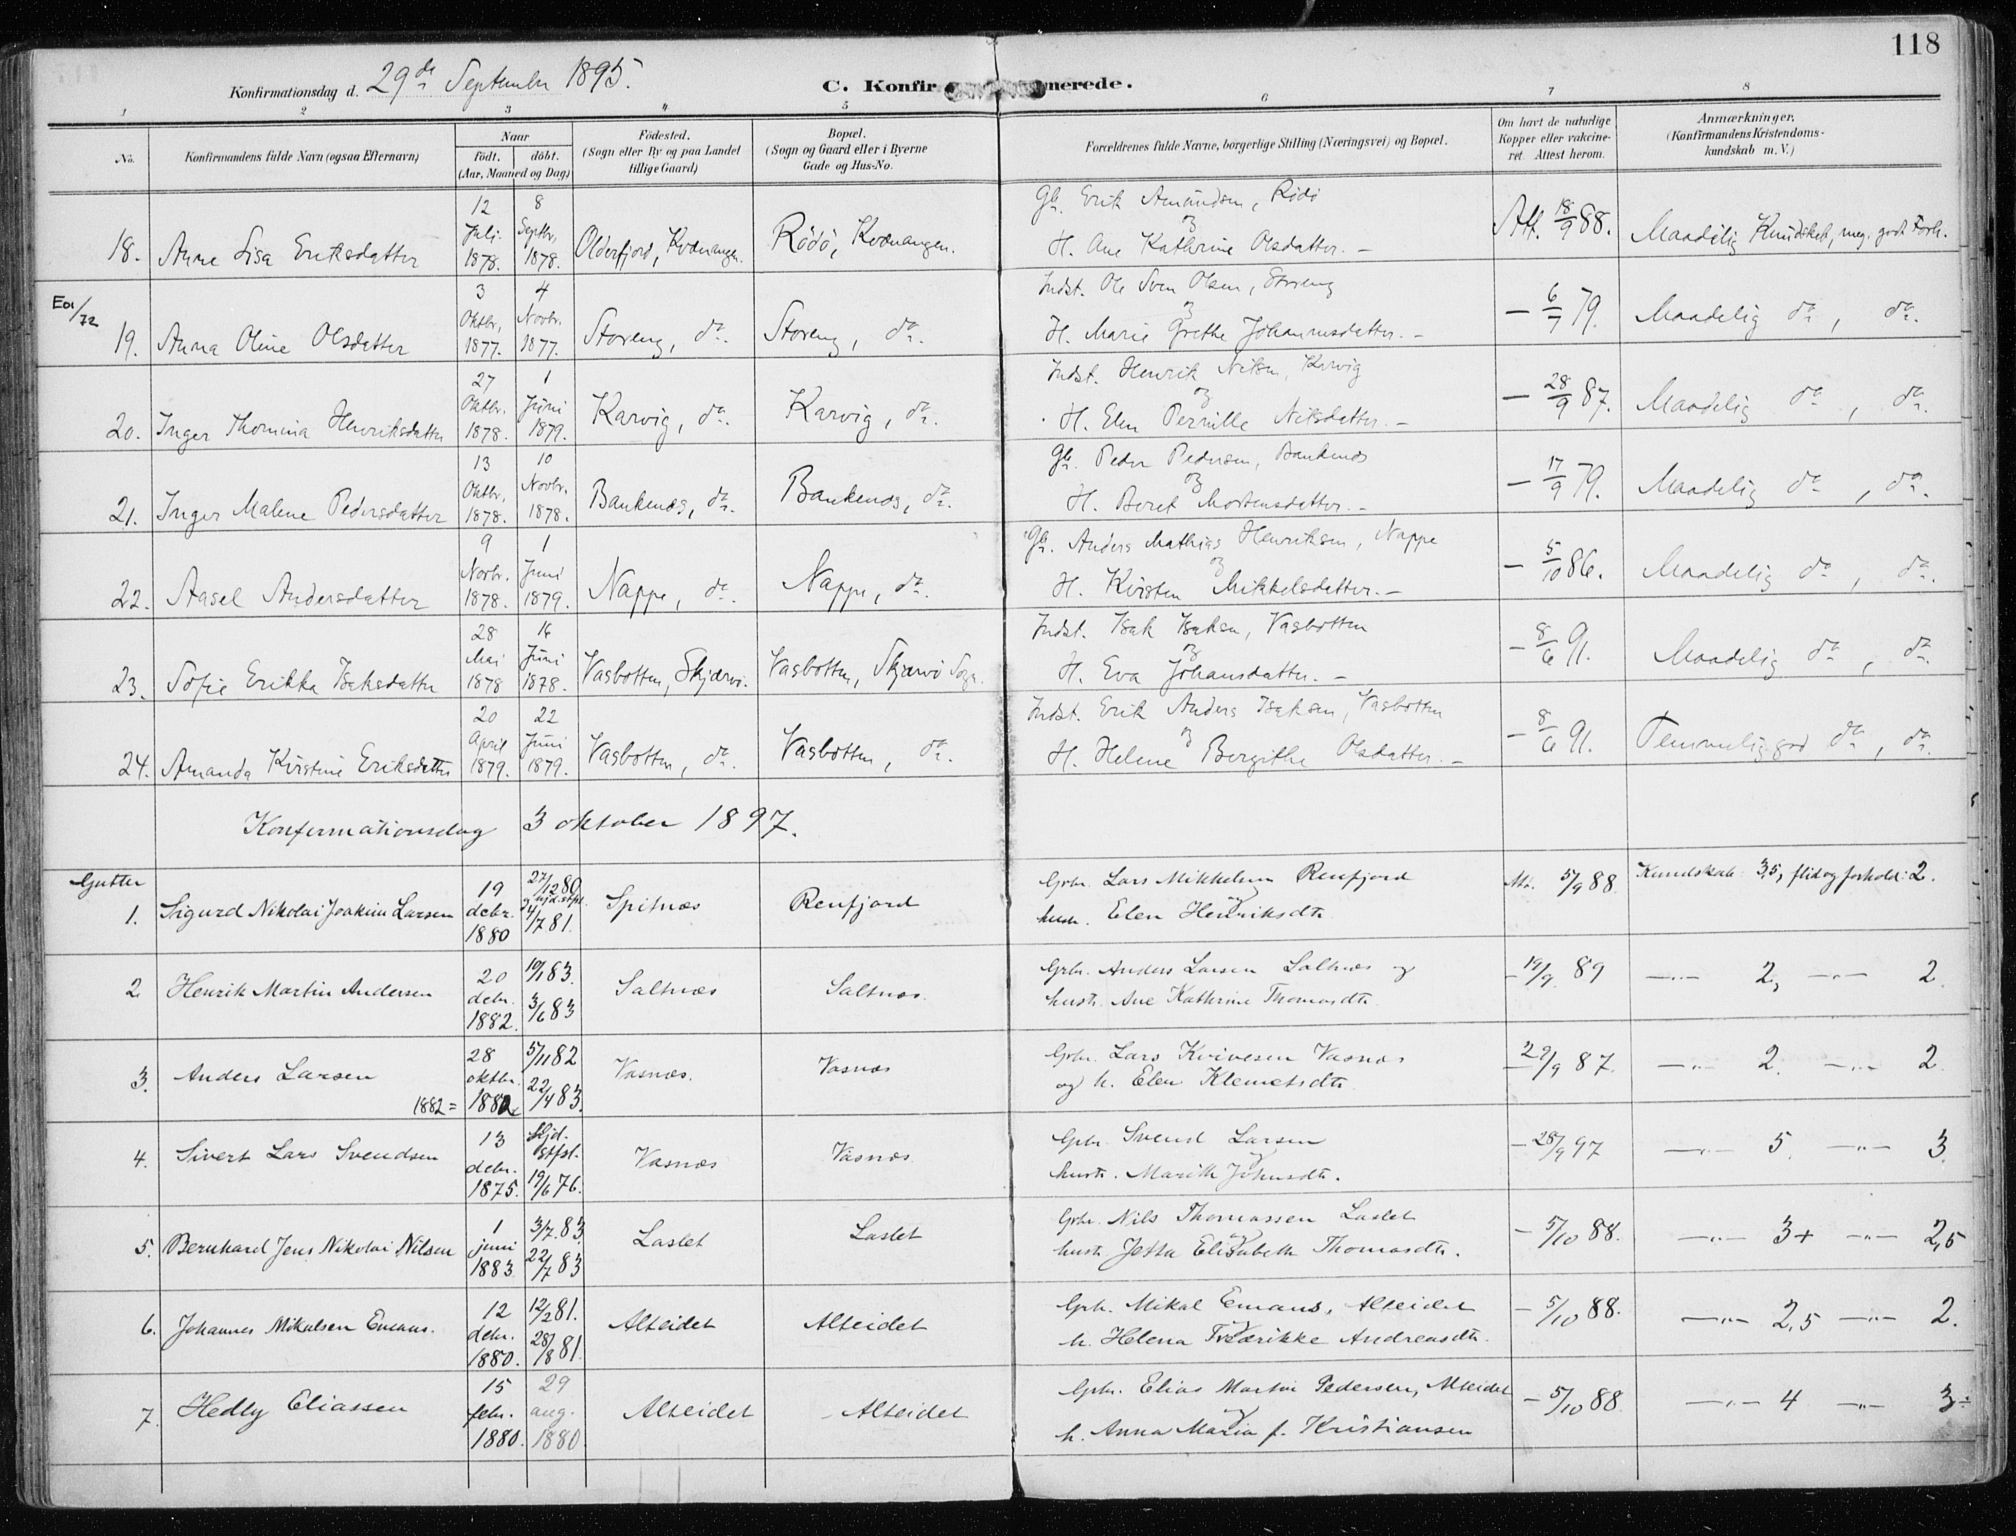 118
Konfirmationsdag d. 29de September 1895.
C. Konfir merede.
1 2 3 4 5 6 7 8
No. Konfirmandens fulde Navn (ogsaa Efternavn) Naar födt. döbt. (Aar, Maaned og Dag) Födested. (Sogn eller By og paa Landet tillige Gaard) Bopæl. (Sogn og Gaard eller i Byerne Gade og Hus-No. Forældrenes fulde Navne, borgerlige Stilling (Næringsvei) og Bopæl. Om havt de naturlige Kopper eller vakcineret. Attest herom. Anmærkninger. (Konfirmandens Kristendomskundskab m. V.)
18. Anne Lisa Eriksdatter 12 Juli 1878. 8 Septbr. 1878. Olderfjord, Kvænangen. Rödö, Kvænangen. Gb. Erik Amundsen, Rödö og H. Ane Kathrine Olsdatter. — Att. 18/9 88. Maadelig Kundskab, meg. godt Forh.
E01/72
19. Anna Oline Olsdatter 3 Oktbr. 1877. 4 Novbr. 1877. Storeng, do. Storeng, do. Indst. Ole Sven Olsen, Storeng og H. Marie Grethe Johannesdatter. — — 6/7 79. Maadelig do, do.
20. Inger Thomina Henriksdatter 27 Oktbr. 1878. 1 Juni 1879. Karvig, do. Karvig, do. Indst. Henrik Nilsen, Karvig og H. Elen Pernille Nilsdatter. — — 28/9 87. Maadelig do, do.
21. Inger Malene Pedersdatter 13 Oktbr. 1878. 10 Novbr. 1878. Bankenæs, do. Bankenæs, do. Gb. Peder Pedersen, Bankenæs og H. Beret Mortensdatter. — — 17/9 79. Maadelig do, do.
22. Aasel Andersdatter 9 Novbr. 1878. 1 Juni 1879. Nappe, do. Nappe, do. Gb. Anders Mathias Henriksen, Nappe og H. Kirsten Mikkelsdatter. — — 5/10 86. Maadelig do, do.
23. Sofie Erikka Isaksdatter 28 Mai 1878 16 Juni 1878. Vasbotten, Skjærvö. Vasbotten, Skjærvö Sogn. Indst. Isak Isaksen, Vasbotten og H. Eva Johansdatter. — — 8/6 91. Maadelig do, do.
24. Amanda Kirstine Eriksdatter 20 April 1879. 22 Juni 1879. Vasbotten, do. Vasbotten, do. Indst. Erik Anders Isaksen, Vasbotten og H. Helene Bergithe Olsdatter. — — 8/6 91. Temmelig god do, do.
Konfirmationsdag 3 oktober 1897.
Gutter
1. Sigurd Nikolai Joakim Larsen 19 debr. 1880 27/12 80 hjd. stfst. 4/7 81. Spitnæs Renfjord Gbr. Lars Mikkelsen Renfjord og hustr. Elen Henriksdtr. Att. 5/9 88. Kundskab: 3,5, flid og forhold: 2.
2 Henrik Martin Andersen 20 debr. 1882. 10/1 83. 3/6 83 Saltnæs Saltnæs. Gbr. Anders Larsen Saltnæs og hustr. Ane Kathrine Thomasdtr. — 19/9 89 —"— 2, —"— 2.
3. Anders Larsen 1882= 28 oktbr. 1882 5/11 82 22/4 83. Vasnæs. Vasnæs Gbr. Lars Kvivesen Vasnæs og h. Elen Klemetsdtr. — 29/9 87. —"— 2. —"— 2.
4. Sivert Lars Svendsen 13 debr. 1875. Hjd. stfst. 19/6 76. Vasnæs Vasnæs Gbr. Svend Larsen og hustr. Marith Johnsdtr. — 28/9 97 —"— 5. —"— 3.
5. Bernhard Jens Nikolai Nilsen 1 juni 1883 3/7. 83. 22/7 83 Laslet Laslet Gbr. Nils Thomassen Laslet og hustr. Jetta Elisabeth Thomasdtr. — 5/10 88. —"— 3+ —"— 2,5
6. Johannes Mikalsen Emaus. 12 debr. 1880. 12/2 81. 28/8 81. Alteidet Alteidet Gbr. Mikal Emaus, Alteidet og h. Helena Fredrikke Andreasdtr. — 5/10 88. —"— 2,5 —"— 2.
7. Hedly Eliassen 15 febr. 1880. 29 aug. 1880 Alteidet Alteidet Gbr. Elias Martin Pedersen, Alteidet og h. Anna Maria f. Kristiansen — 5/10 88. —"— 4 —"— 3÷